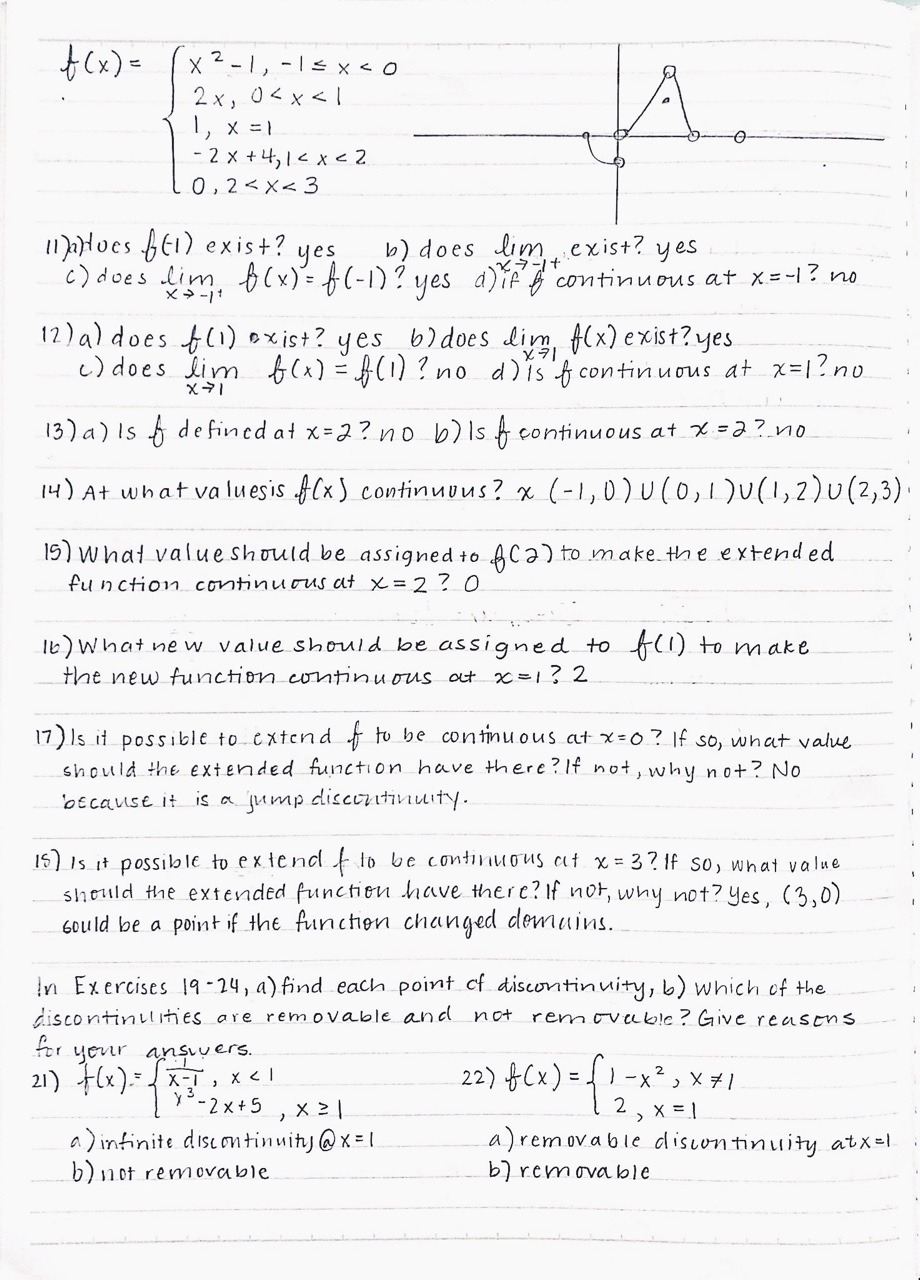 f(x) = { x² - 1, -1 ≤ x < 0
2x, 0 < x < 1
1, x = 1
-2x + 4, 1 < x < 2
0, 2 < x < 3
11)a) does f(-1) exist? yes b) does lim x→-1+ exist? yes
c) does lim x→-1+ f(x) = f(-1)? yes d) if f continuous at x=-1? no
12) a) does f(1) exist? yes b) does lim x→1 f(x) exist? yes
c) does lim x→1 f(x) = f(1)? no d) is f continuous at x=1? no
13) a) Is f defined at x=2? no b) Is f continuous at x=2? no
14) At what values is f(x) continuous? x (-1,0) U (0,1) U (1,2) U (2,3)
15) What value should be assigned to f(2) to make the extended
function continuous at x=2? 0
16) What new value should be assigned to f(1) to make
the new function continuous at x=1? 2
17) Is it possible to extend f to be continuous at x=0? If so, what value
should the extended function have there? If not, why not? No
because it is a jump discontinuity.
18) Is it possible to extend f to be continuous at x=3? If so, what value
should the extended function have there? If not, why not? Yes, (3,0)
could be a point if the function changed domains.
In Exercises 19-24, a) find each point of discontinuity, b) which of the
discontinuities are removable and not removable? Give reasons
for your answers.
21) f(x) = { 1/(x-1), x < 1
x³ - 2x + 5, x ≥ 1
a) infinite discontinuity @ x=1
b) not removable
22) f(x) = { 1 - x², x ≠ 1
2, x = 1
a) removable discontinuity at x=1
b) removable